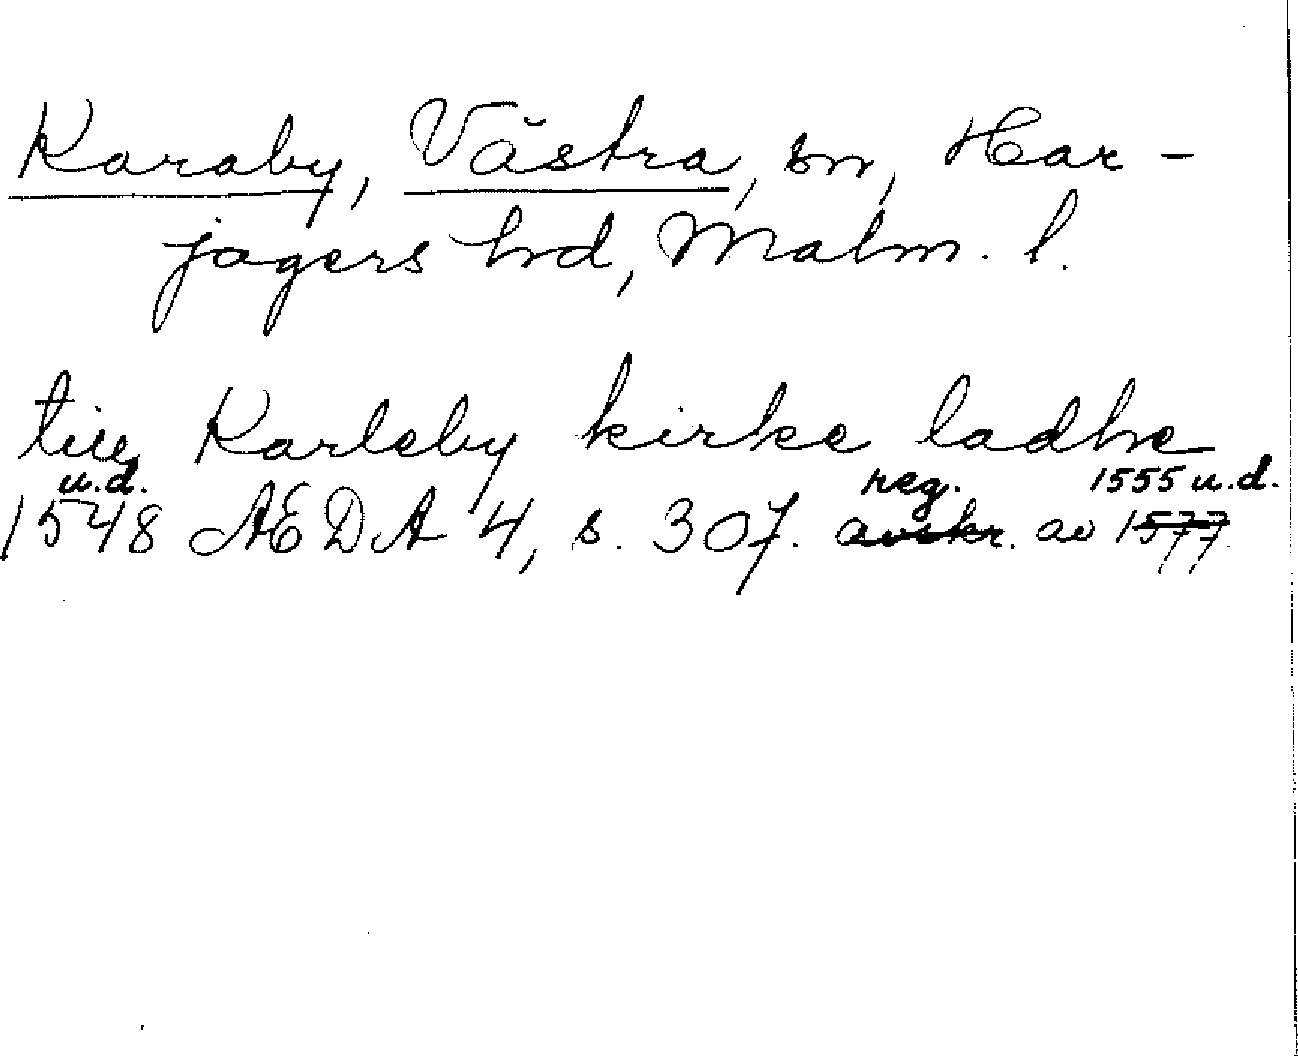 Karaby, Västra, sn, Har-
jagers hd, Malm. l.
till Karleby kirke ladhe
u.d. reg. 1555 u.d.
1548 ÆDA 4, s. 307. avskr. av 1577